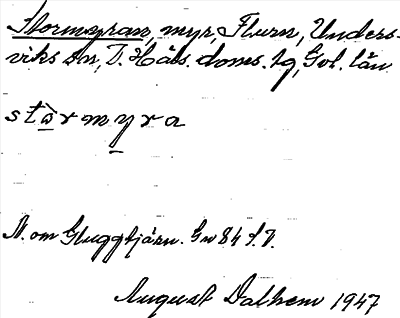 Stormyran, myr, Flurn, Unders-
viks sn, N. Häls. doms. lg, Gvl. län
stòrmyra
N. om Gluggtjärn. Gw 84 f.7.
August Dalhem 1947